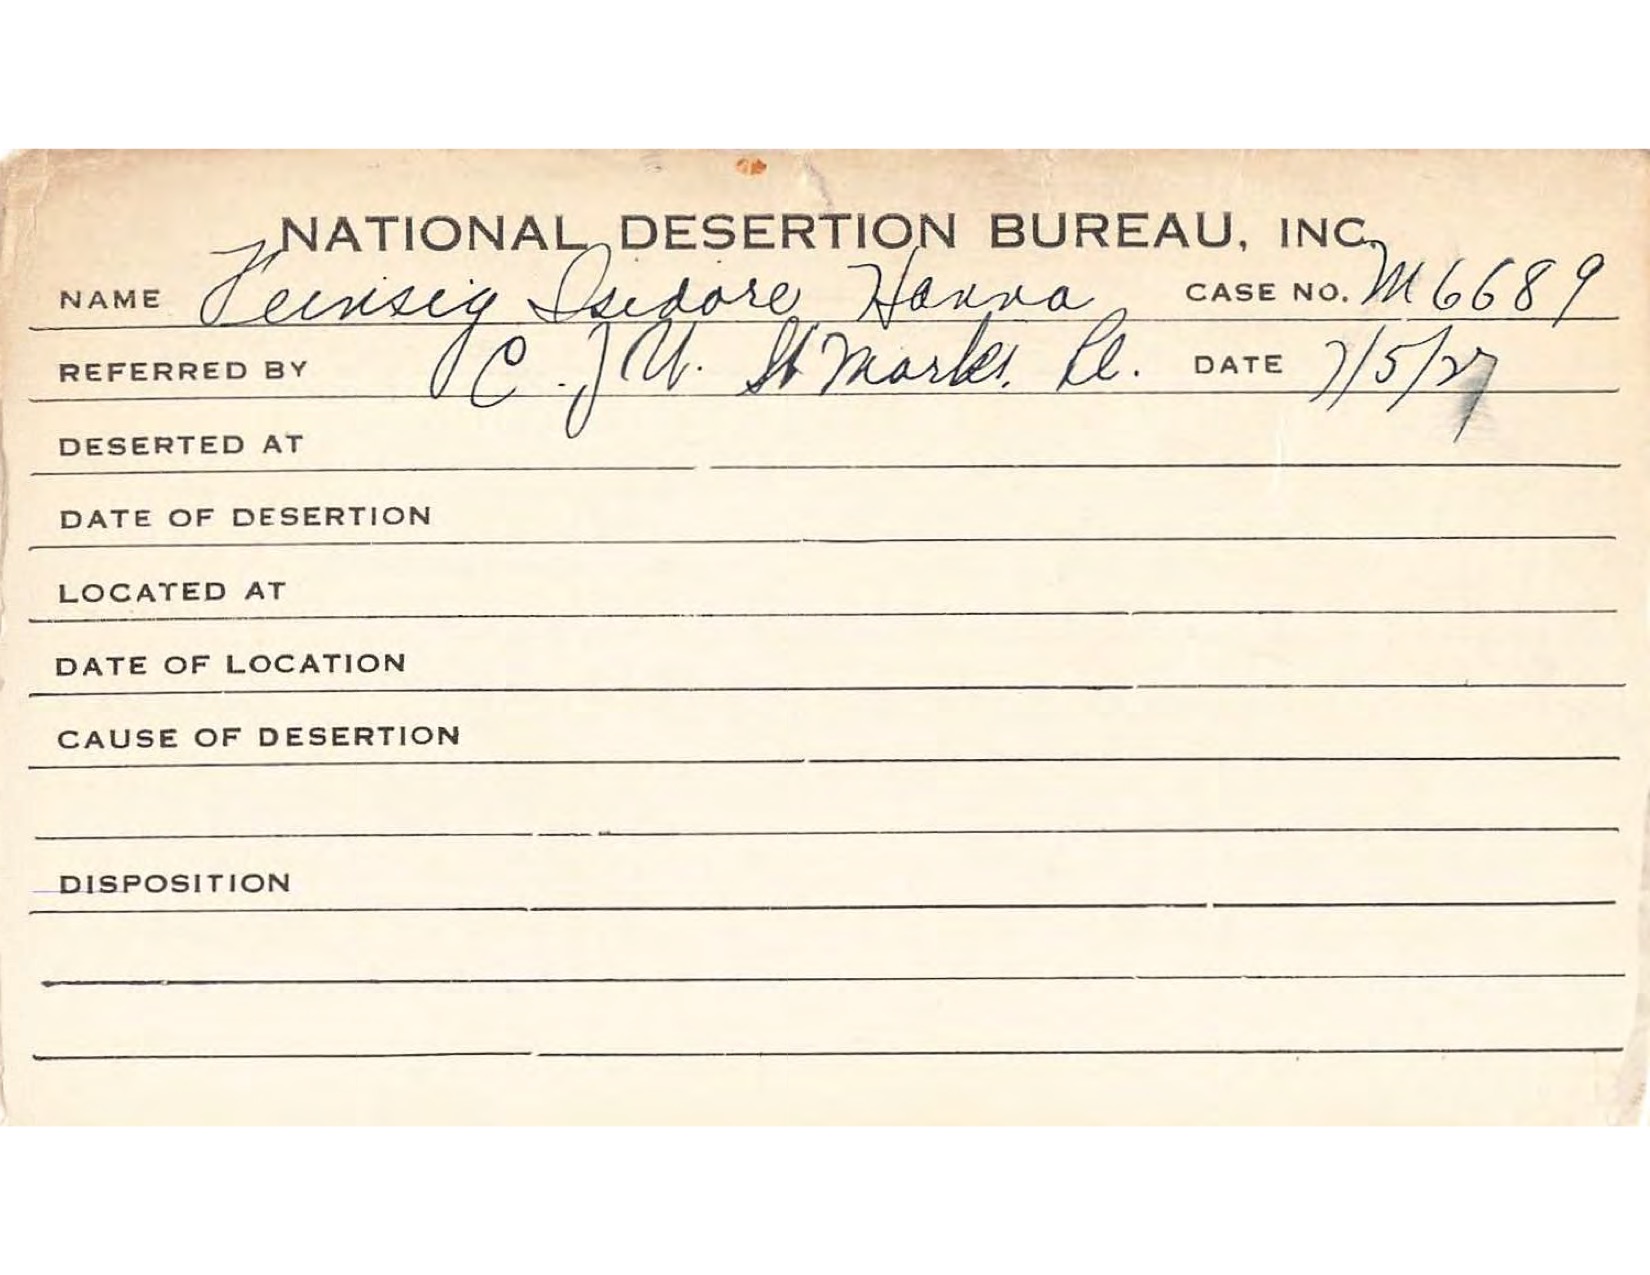 NATIONAL DESERTION BUREAU, INC.
NAME Isidore Hanna CASE NO. M6689
REFERRED BY St Marks Pl. DATE 7/5/27
DESERTED AT
DATE OF DESERTION
LOCATED AT
DATE OF LOCATION
CAUSE OF DESERTION
DISPOSITION